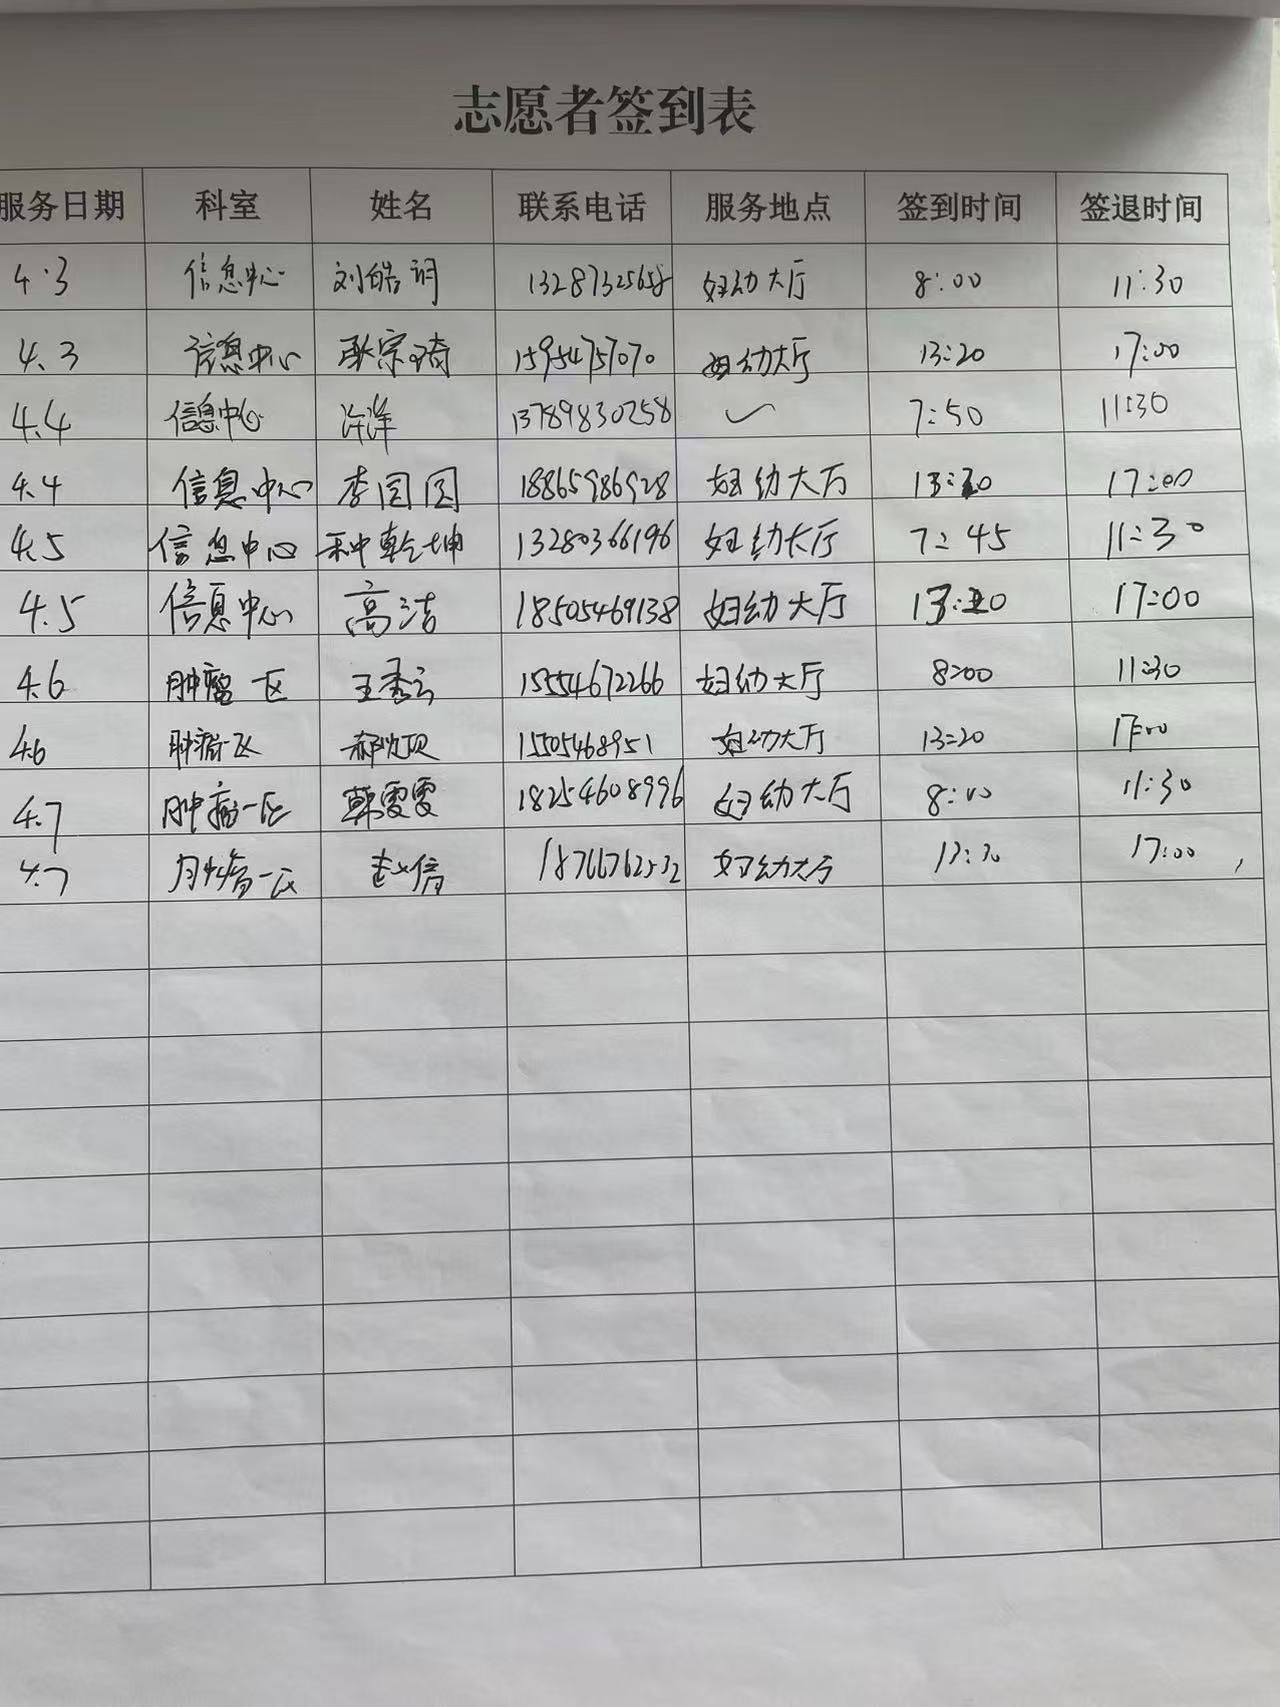 志愿者签到表
服务日期 科室 姓名 联系电话 服务地点 签到时间 签退时间
4.3 信息中心 刘皓 妇幼大厅 8:00 11:30
4.3 信息中心 耿宗琦 15954757070 妇幼大厅 13:20 17:00
4.4 信息中心 许洋 13789830258 ✓ 7:50 11:30
4.4 信息中心 李园园 18865986928 妇幼大厅 17:00
4.5 信息中心 种乾坤 13280366196 妇幼大厅 7:45 11:30
4.5 信息中心 高洁 18505469138 妇幼大厅 13:20 17:00
4.6 肿瘤一区 王秀云 15554672266 妇幼大厅 8:00 11:30
4.6 肿瘤一区 15505468951 妇幼大厅 13:20 17:00
4.7 肿瘤一区 韩雯雯 18254608996 妇幼大厅 8:00 11:30
4.7 肿瘤一区 赵倩 18766762532 妇幼大厅 13:30 17:00